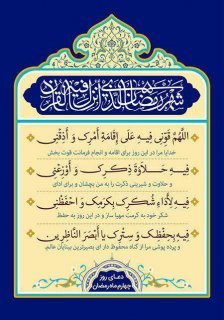 شهر رمضان الذی انزل فیه القرآن
اَللّهُمَّ قَوِّنی فیهِ عَلی اِقامَةِ اَمرِکَ وَ اَذِقنی
خدایا مرا در این روز برای اقامه و انجام فرمانت قوت بخش
فیهِ حَلاوَةَ ذِکرِکَ وَ اَوزِعنی
و حلاوت و شیرینی ذکرت را به من بچشان و برای ادای
فیهِ لِاَداءِ شُکرِکَ بِکَرَمِکَ وَ احفَظنی
شکر خود به کرمت مهیا ساز و در این روز به حفظ
فیهِ بِحِفظِکَ وَ سِترِکَ یا اَبصَرَ النّاظِرینَ
و پرده پوشی مرا از گناه محفوظ دار ای بصیرترین بینایان عالم.
دعـای روز
چهارم ماه رمضان